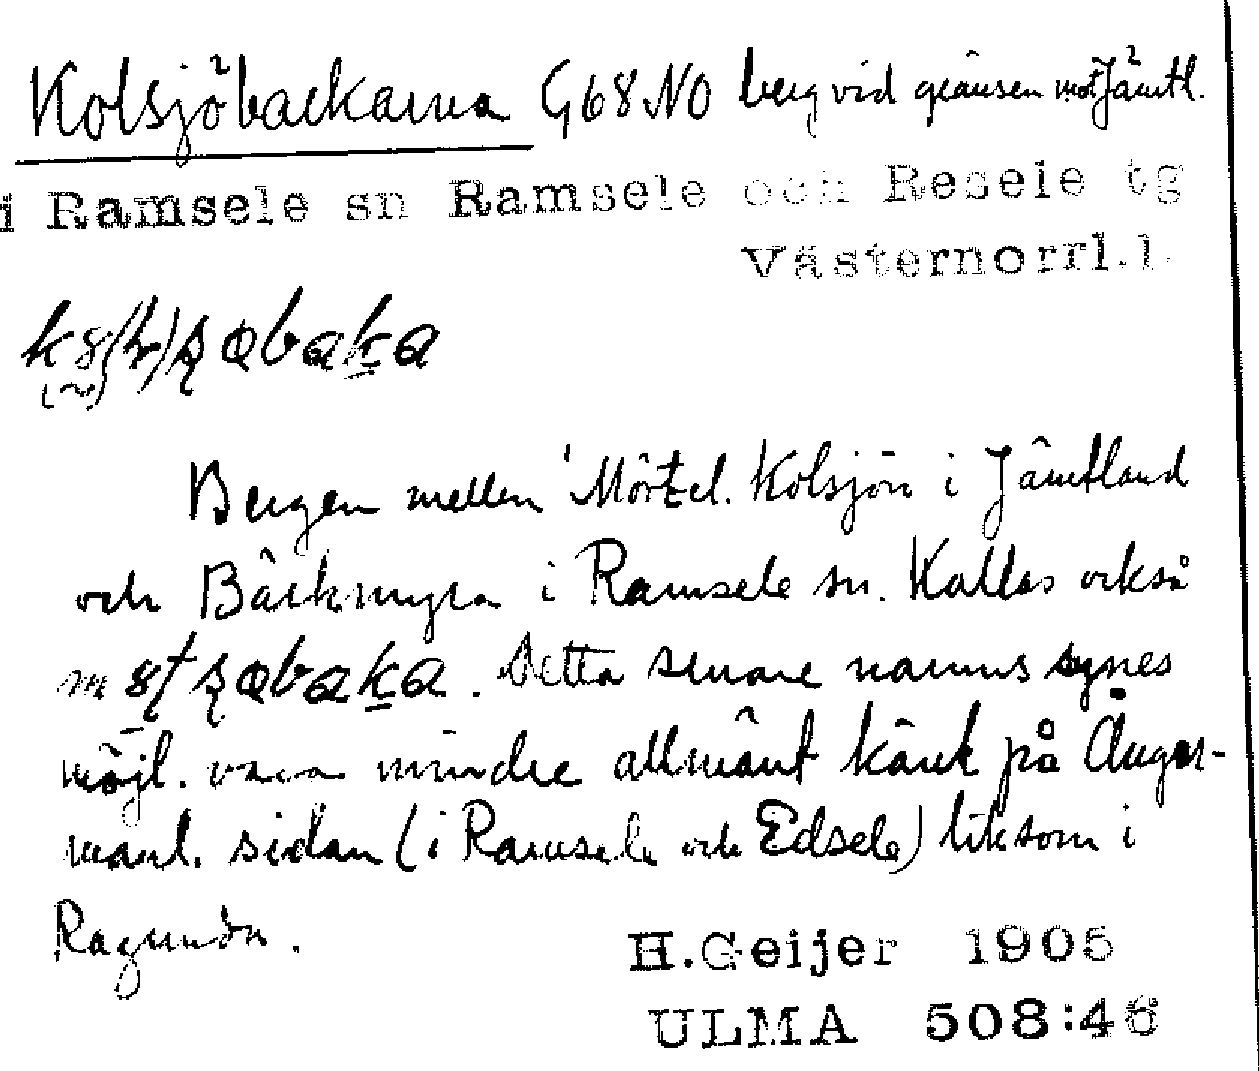 Kolsjöbackarna G68NO berg vid gränsen mot Jämtl.
i Ramsele sn Ramsele och Resele tg
Västernorrl.l.
Bergen mellan Mörtel. Kolsjön i Jämtland
och Bäckmyra i Ramsele sn. Kallas också
. Detta senare namns synes
möjl. vara mindre allmänt känt på Ånger-
manl. sidan (i Ramsele och Edsele) liksom i
Ragunda.
H.Geijer 1905
ULMA 508:46